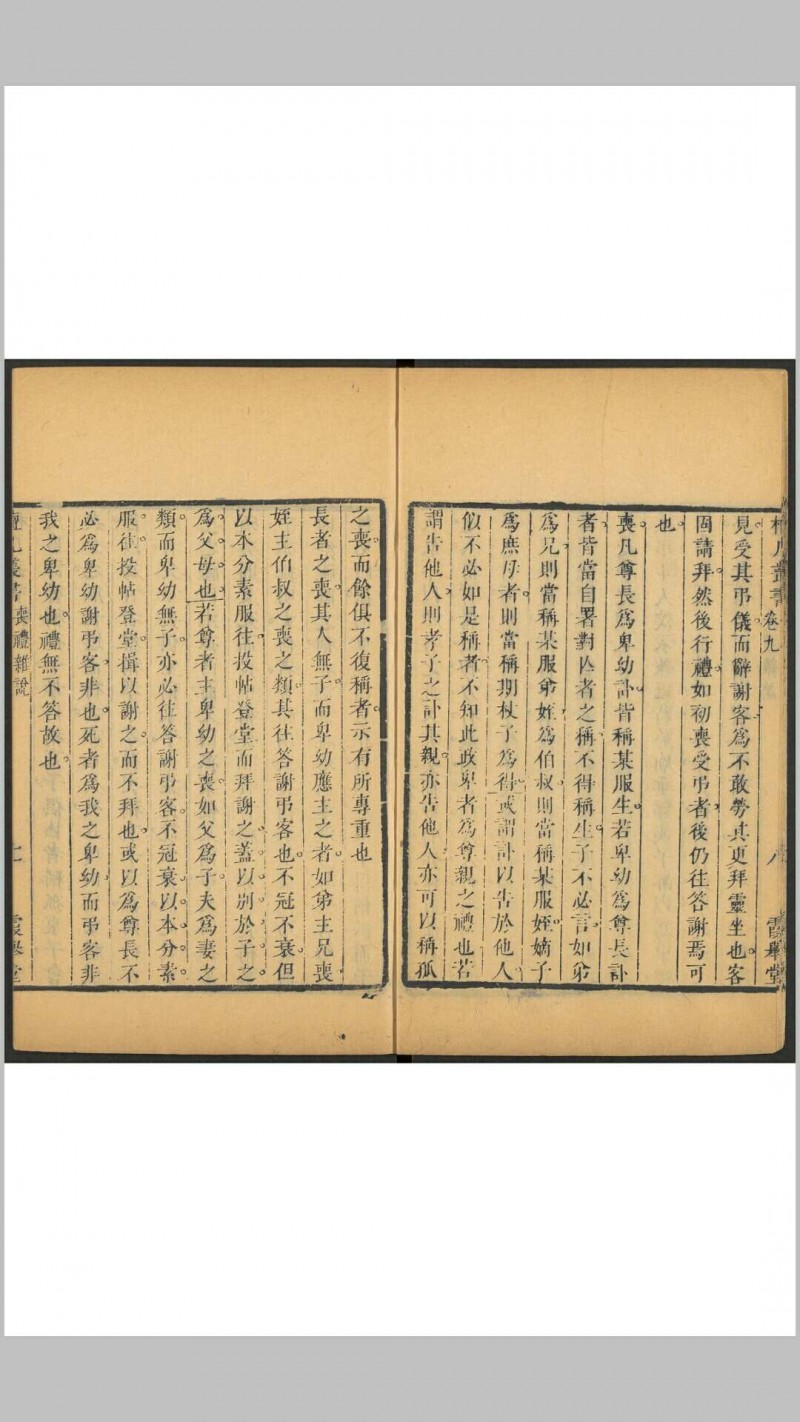 檀几叢書 卷九 八 霞舉堂
見受其弔儀而辭謝客為不敢勞其更拜靈坐也客
固請拜然後行禮。如初喪受弔者後仍往答謝焉可
也。
喪凡尊長為卑幼訃皆稱某服生。若卑幼為尊長訃
者皆當自署對亾者之稱不得稱生。子不必言。如弟
為兄。則當稱某服弟。姪為伯叔。則當稱某服姪。嫡子
為庶母者。則當稱期杖子為得。或謂訃以告於他人。
似不必如是稱者。不知此政卑者為尊親之禮也。若
謂告他人則孝子之訃其親。亦告他人亦可以稱孤
之喪而餘俱不復稱者。示有所專重也
長者之喪。其人無子。而卑幼應主之者。如弟主兄喪
姪主伯叔之喪之類。其往答謝弔客也。不冠不衰。但
以本分素服往。投帖登堂而拜謝之。蓋以別於子之
為父母也。若尊者主卑幼之喪。如父為子夫為妻之
類。而卑幼無子。亦必往答謝弔客。不冠衰。以本分素
服。往投帖登堂。揖以謝之。而不拜也。或以為尊長不
必為卑幼謝弔客。非也。死者為我之卑幼。而弔客非
我之卑幼也。禮無不答故也。
檀几叢書 喪禮雜說 霞舉堂